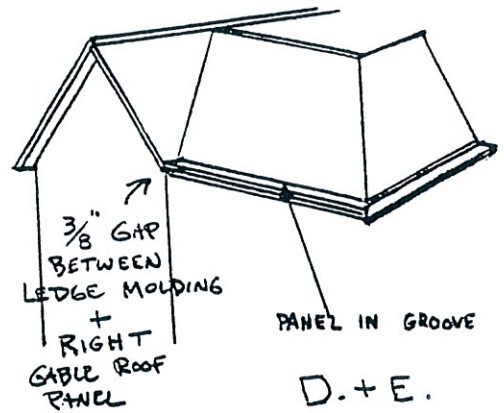 3/8" GAP
BETWEEN
LEDGE MOLDING
+
RIGHT
GABLE ROOF
PANEL
PANEL IN GROOVE
D. + E.